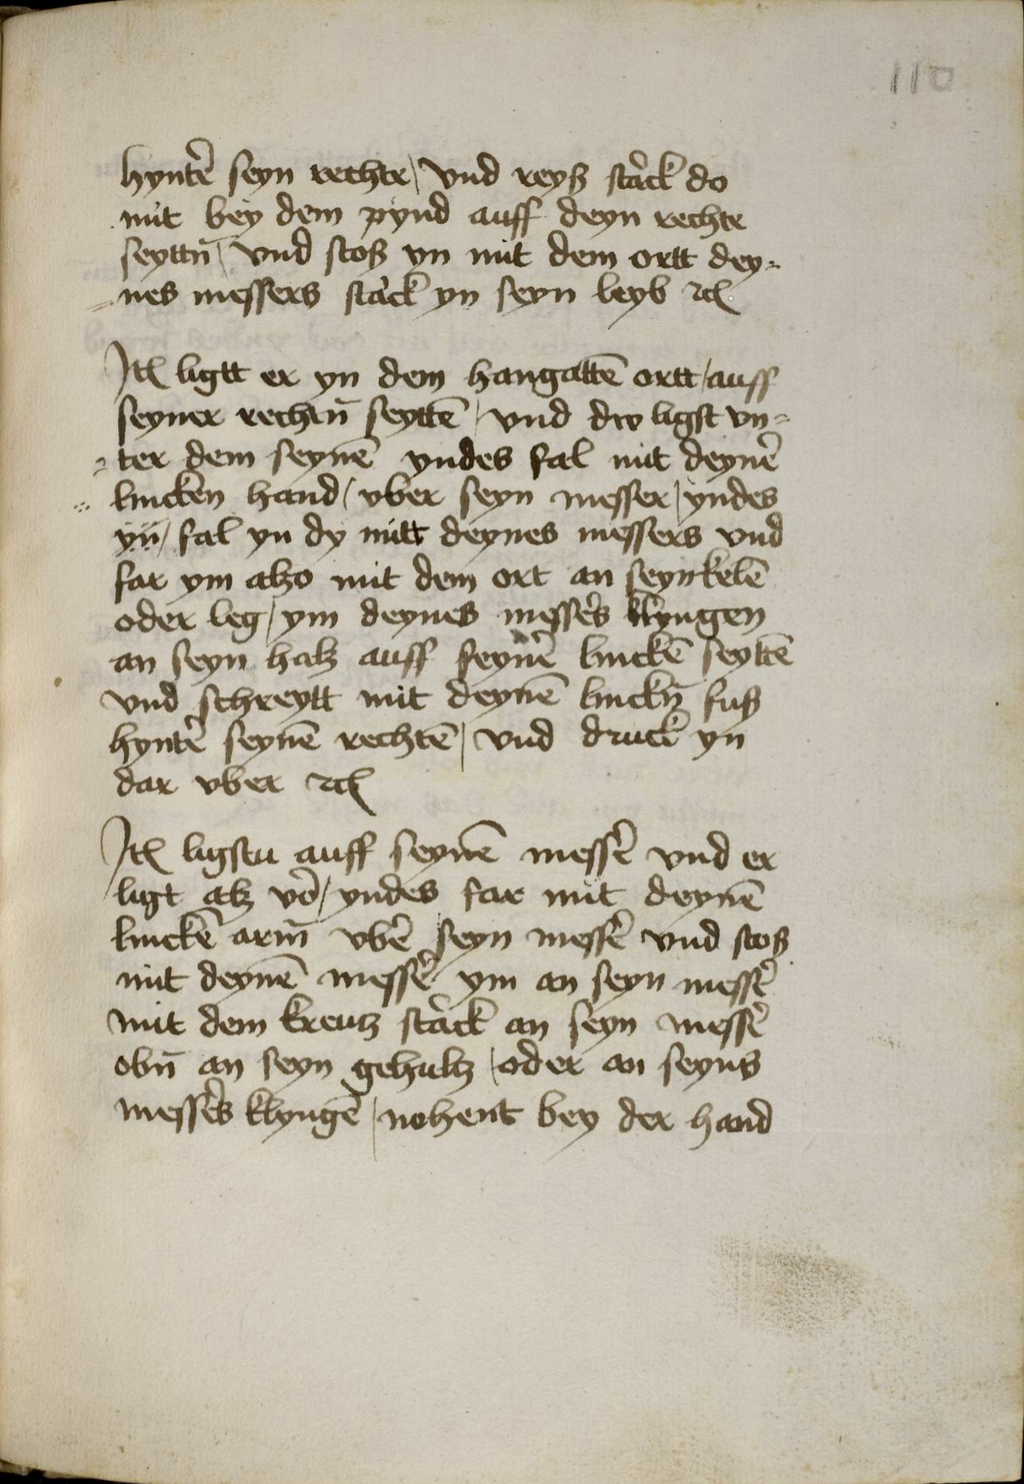 110
hyntẽ seyn rechte / vnd reyß starck do
mit bey dem pynd auff deyn rechte
seyttñ / vnd stoß yn mit dem ortt dey=
=nes messers starck yn seyn leyb ꝛcꝭ
Jtꝭ ligtt er yn dem hangattē ortt / auff
seyner rechtñ seyttē / vnd dw ligst vn=
=ter dem seynē yndes fal mit deynē
lincken hand / vber seyn messer / yndes
yñ / fal yn dy mitt deynes messers vnd
far ym alzo mit dem ort an seyn kelē
oder leg / ym deynes messers klyngen
an seyn halz auff seynē linckē seyttē
vnd schreytt mit deynē linckñ fuß
hyntẽ seynē rechtē / vnd druck yn
dar vber ꝛcꝭ
Jtꝭ ligstu auff seynē messẽ vnd er
ligt alz võ / yndes far mit deynē
linckē arm̄ vbẽ seyn messẽ vnd stoß
mit deynē messẽ ym an seyn messẽ
mit dem kreutz starck an seyn messẽ
obñ an seyn gehultz / oder an seyns
messers klyngē / nohent bey der hand